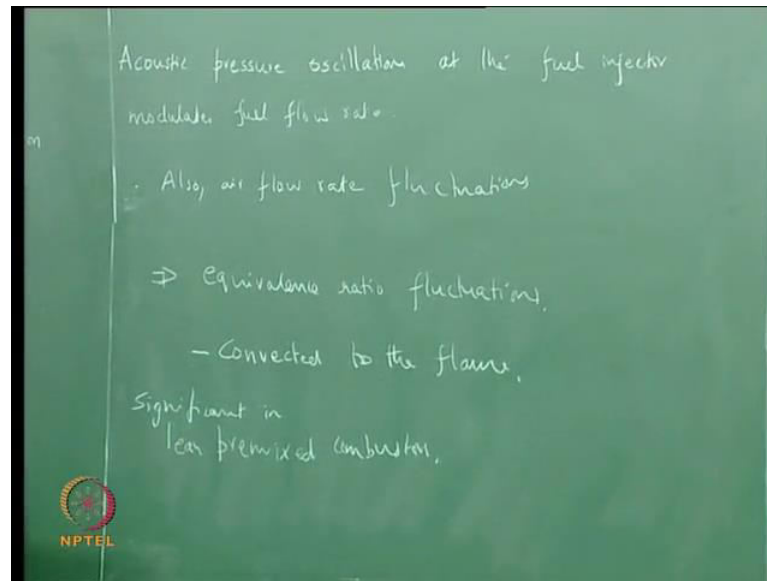 Acoustic pressure oscillation at the fuel injector
modulates fuel flow rate.
m
. Also, air flow rate fluctuations
⇒ equivalence ratio fluctuations.
- Convected to the flame.
Significant in
lean premixed combustion.
NPTEL